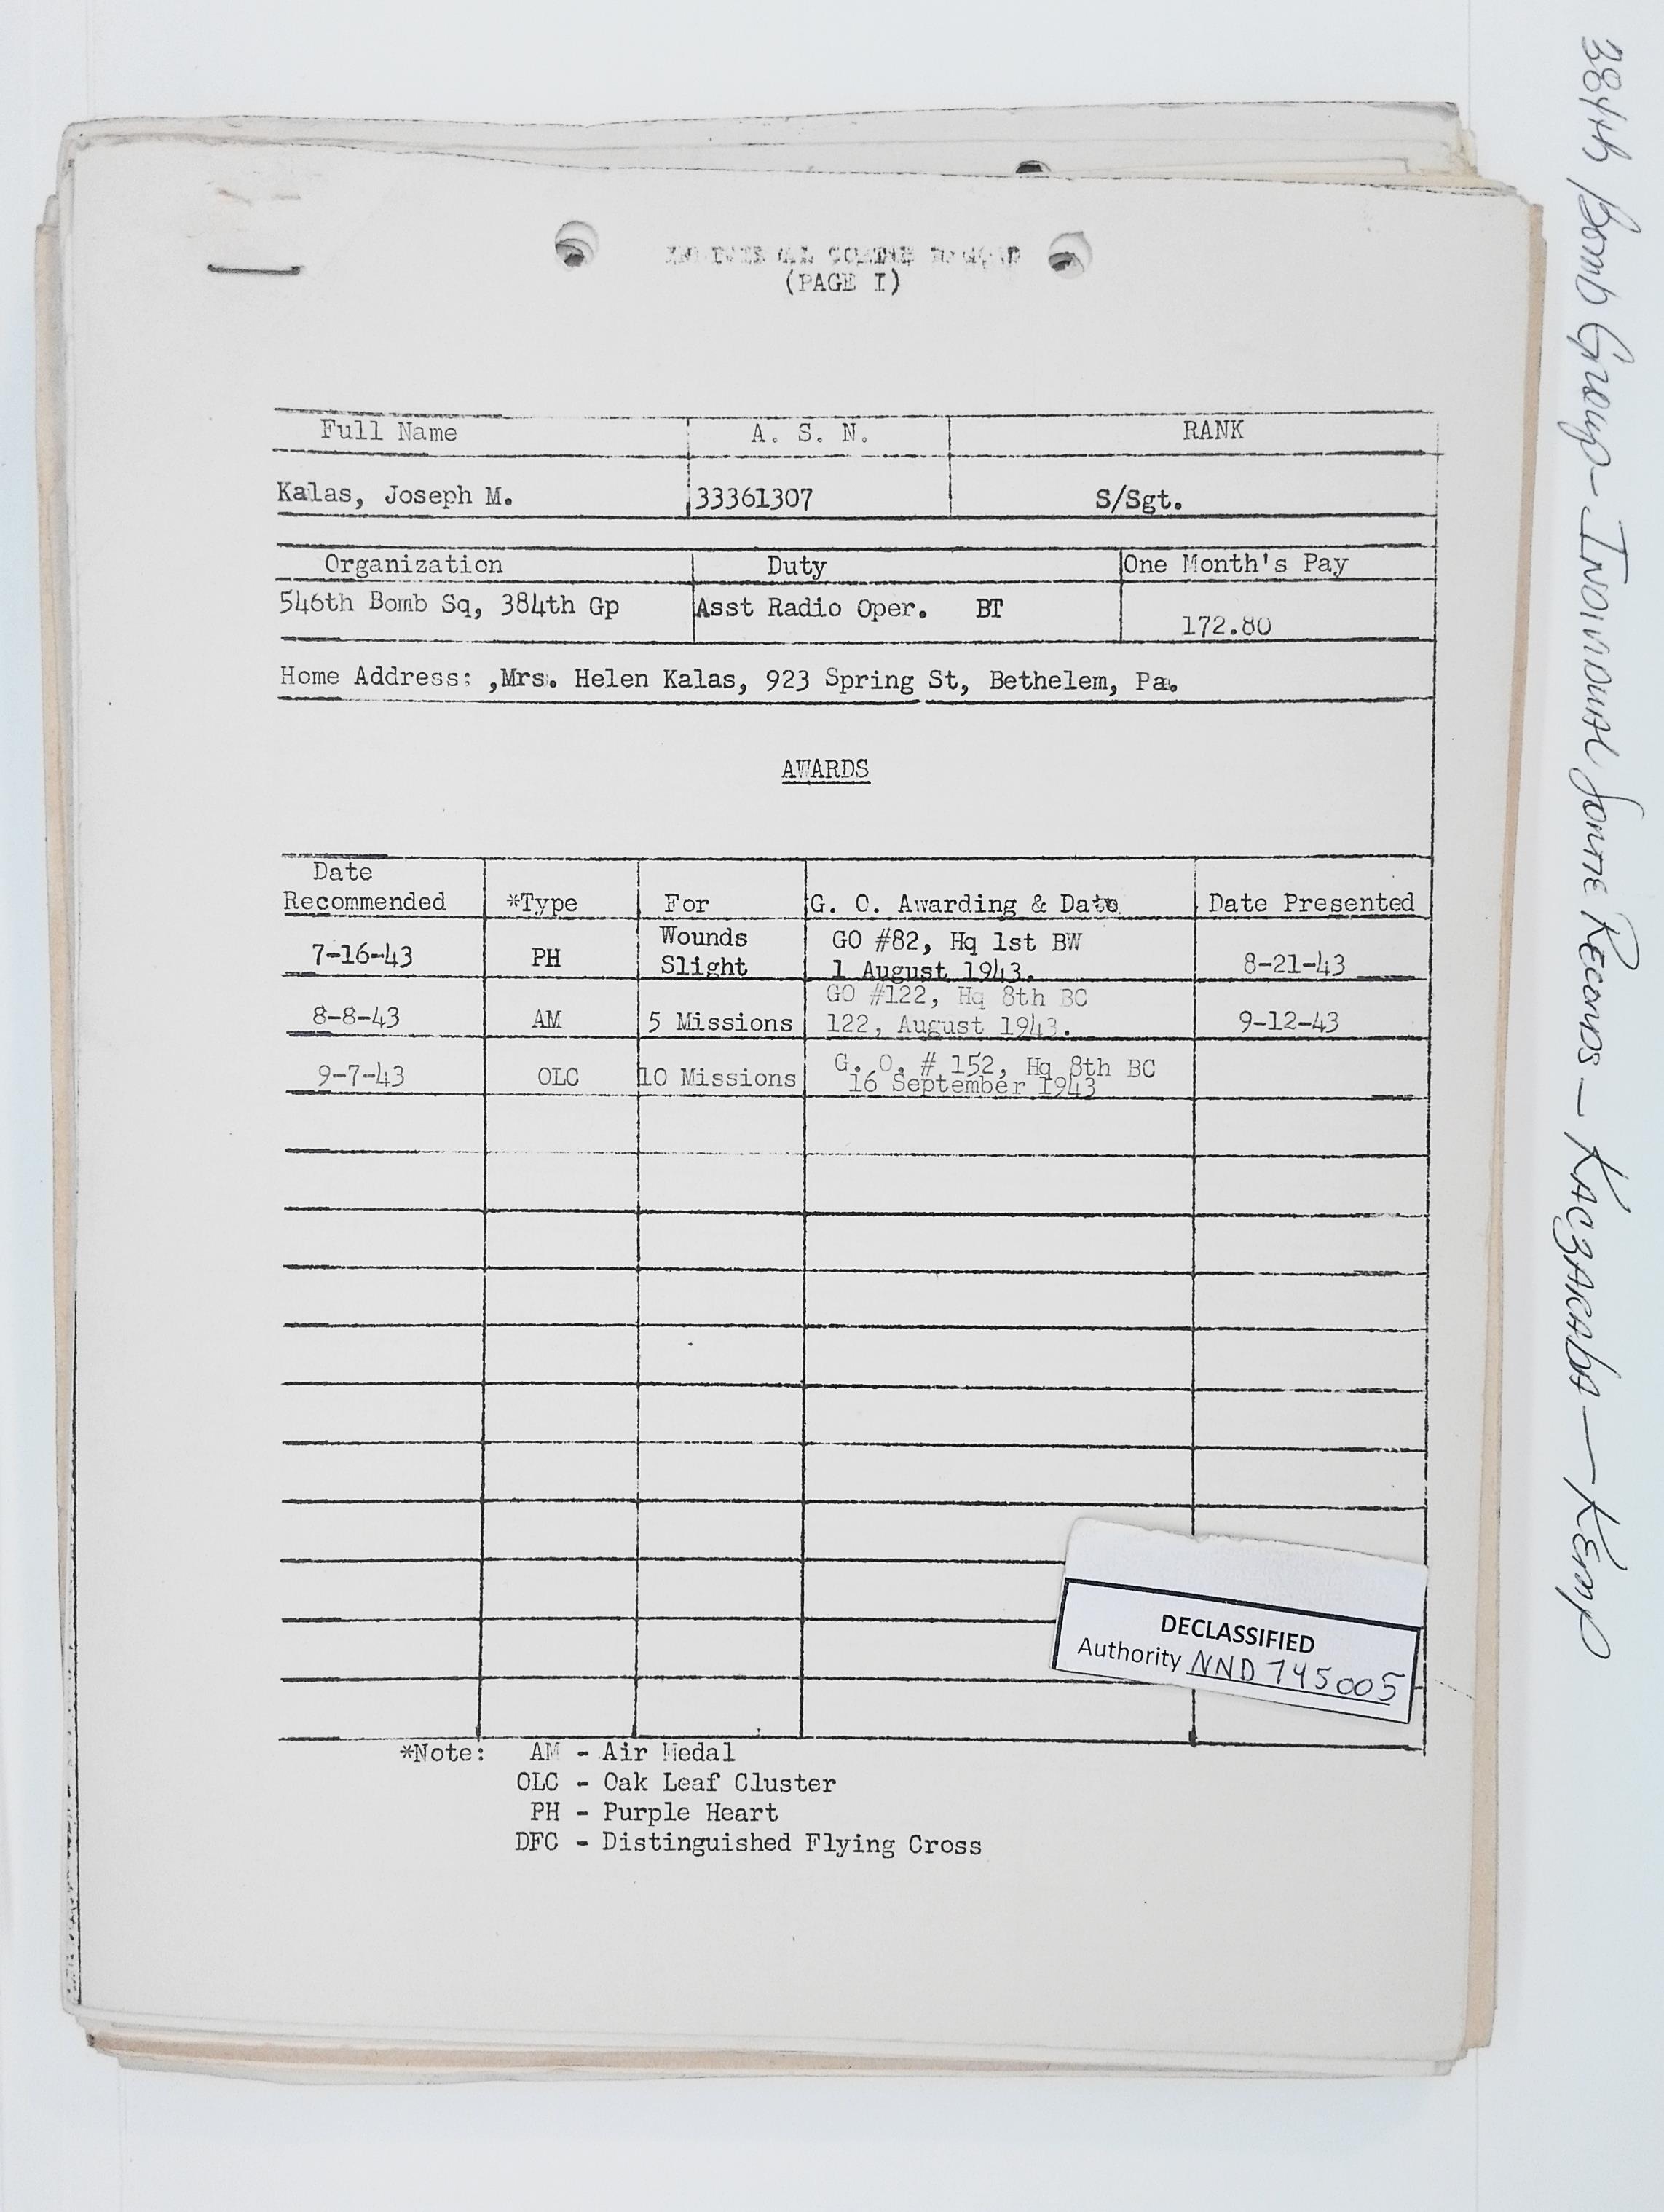 (PAGE I)
Full Name A. S. N. RANK
Kalas, Joseph M. 33361307 S/Sgt.
Organization Duty One Month's Pay
546th Bomb Sq, 384th Gp Asst Radio Oper. BT 172.80
Home Address: ,Mrs. Helen Kalas, 923 Spring St, Bethelem, Pa.
AWARDS
Date
Recommended *Type For G. O. Awarding & Date Date Presented
7-16-43 PH Wounds Slight GO #82, Hq 1st BW 1 August 1943. 8-21-43
8-8-43 AM 5 Missions GO #122, Hq 8th BC 122, August 1943. 9-12-43
9-7-43 OLC 10 Missions G. O. # 152, Hq 8th BC 16 September 1943
DECLASSIFIED
Authority NND 745005
*Note: AM - Air Medal
OLC - Oak Leaf Cluster
PH - Purple Heart
DFC - Distinguished Flying Cross
384th Bomb Group - Individual Sortie Records - Kaczaraba - Kemp